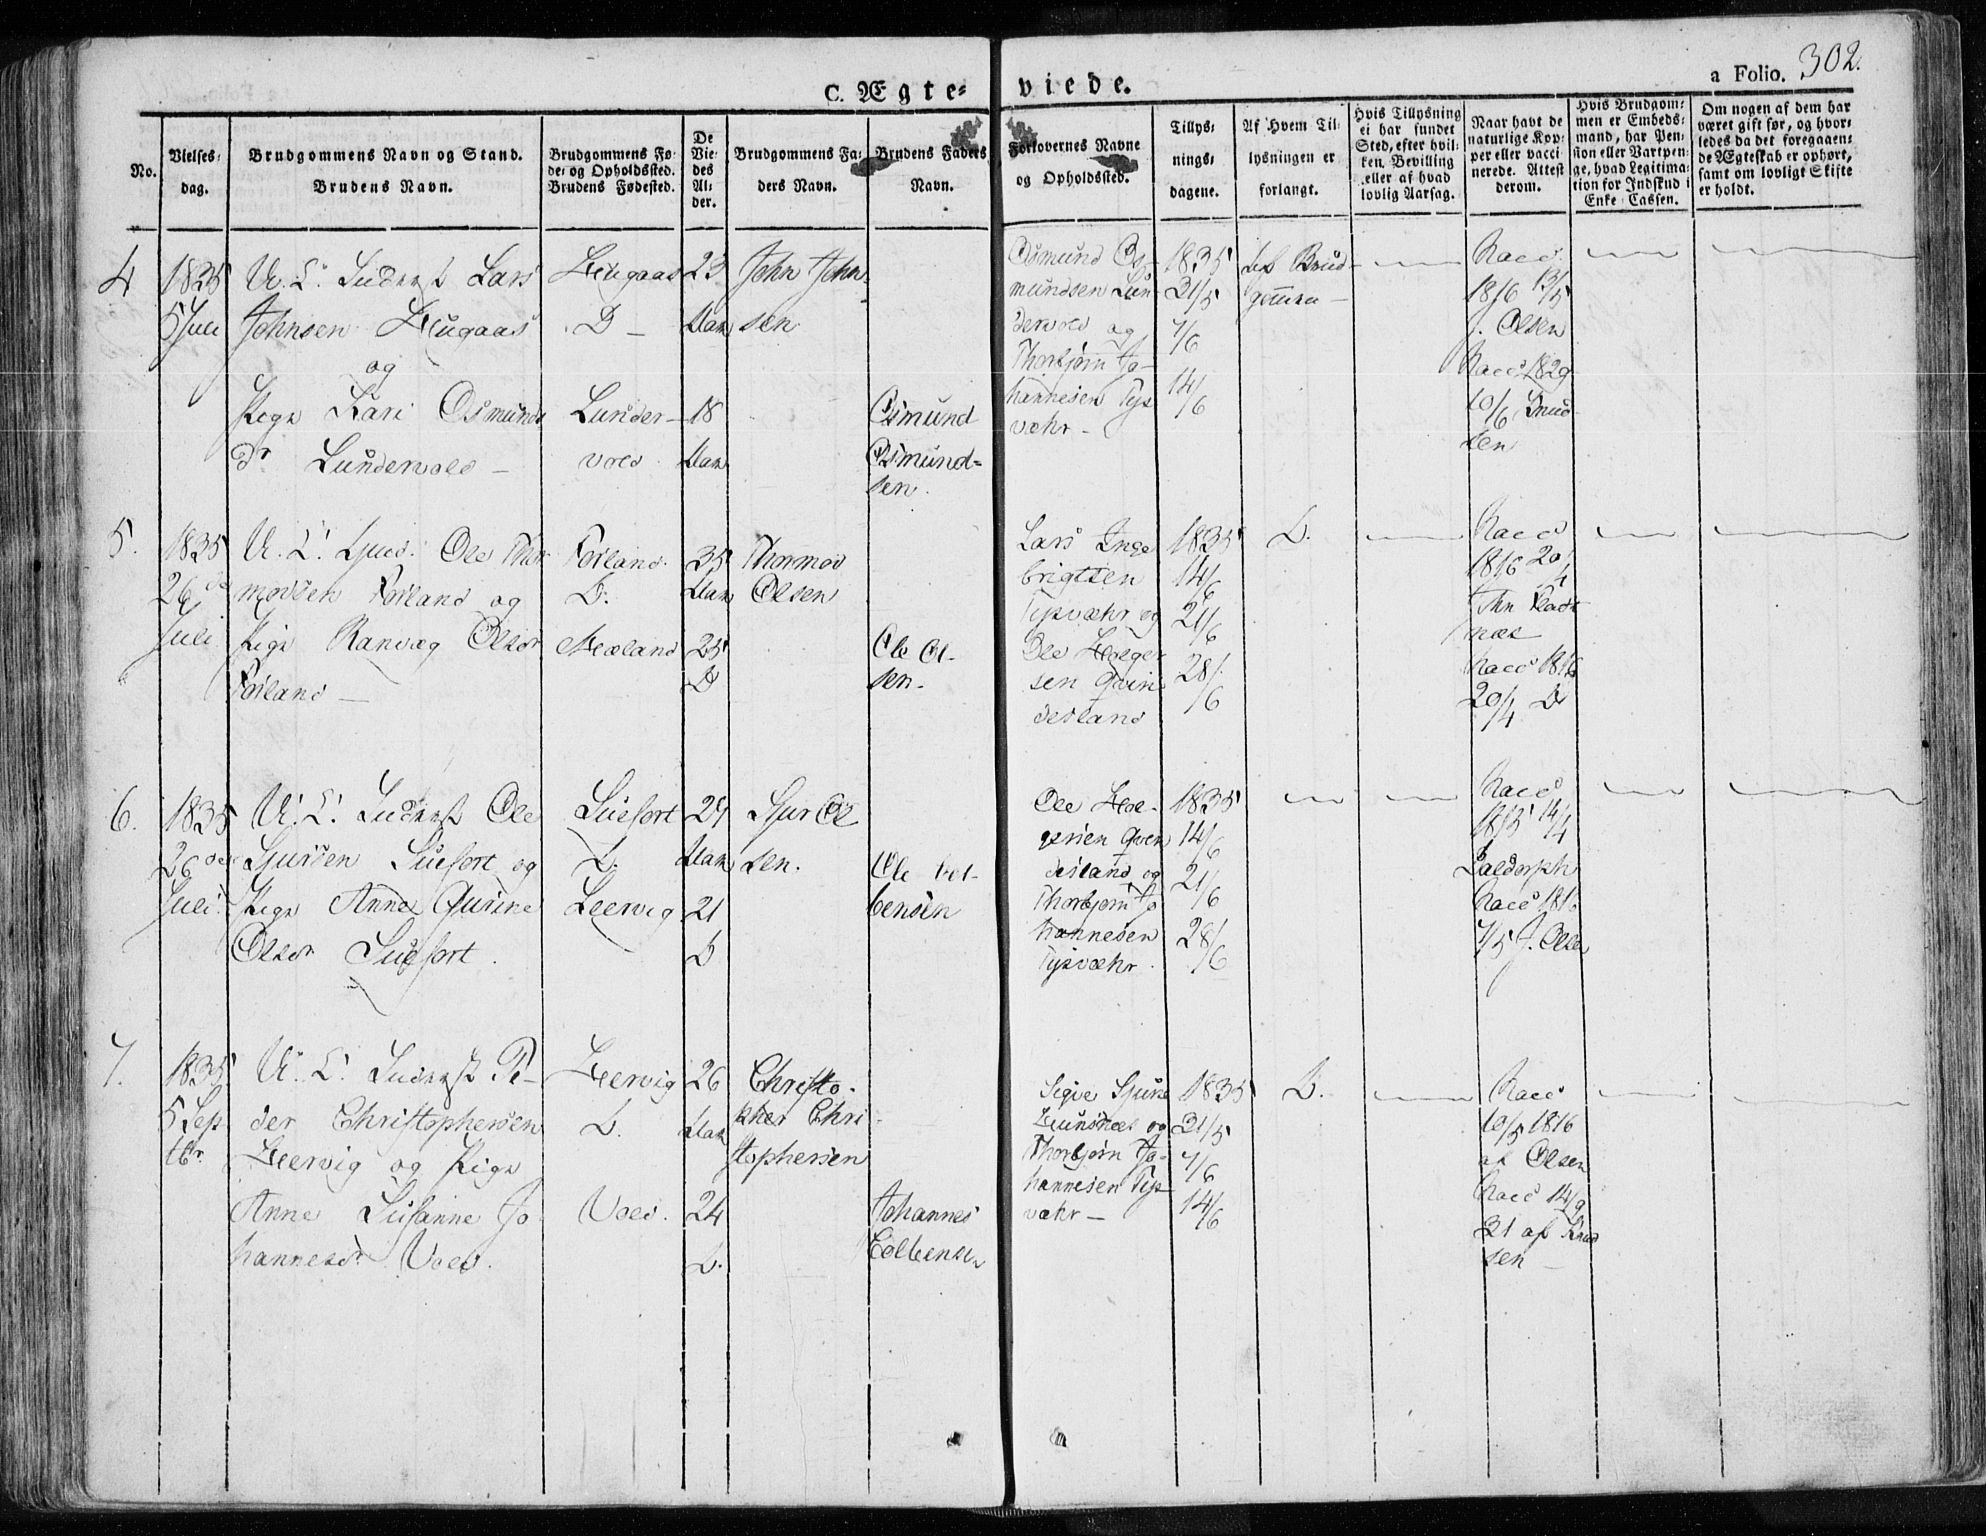 a Folio. 302.
C. Ægte= viede.
No.
Vielses=
dag.
Brudgommens Navn og Stand.
Brudens Navn.
Brudgommens Fø=
de= og Opholdssted.
Brudens Fødested.
De
Vie=
des
Al=
der.
Brudgommens Fa=
ders Navn.
Brudens Faders
Navn.
Forlovernes Navne
og Opholdssted.
Tillys=
nings=
dagene.
Af Hvem Til=
lysningen er
forlangt.
Hvis Tillysning
ei har fundet
Sted, efter hvil=
ken Bevilling
eller af hvad
lovlig Aarsag.
Naar havt de
naturlige Kop=
per eller vacci=
nerede. Attest
derom.
Hvis Brudgom=
men er Embeds=
mand, har Pen=
sion eller Vartpen=
ge, hvad Legitima=
tion for Indskud i
Enke Cassen.
Om nogen af dem har
været gift før, og hvor=
ledes da det foregaaen=
de Ægteskab er ophørt,
samt om lovligt Skifte
er holdt.
4
1835
5 Juli
U. C. Lars
Johnsen Haugaas
og
Pige Kari Osmunds
dr Lundervold –
Haugaas
D –
Lunder-
vold
23
Aar
18
Aar
John John-
sen
Osmund
Osmund=
sen.
Osmund Os-
mundsen Lun-
dervold og
Thorbjørn Jo-
hannesen Tys
væhr –
1835
31/5
7/6
14/6
af Brud-
gommen –
Vacc
1816 13/5
J. Olsen
Vacc 1829
10/6 Knud
sen
5.
1835
26de
Juli
U. C. Ole Thor
modsen Føiland og
Pige Ranvæg Olsdr
Føiland –
Føiland
D.
Meeland
35
Aar
25
D
Thormod
Olsen
Ole Ol-
sen.
Lars Inge
brigtsen
Tysvæhr og
Ole Holger
sen Qvin
desland
1835
14/6
21/6
28/6
D.
Vacc
1816 20/4
næs
Vacc 1816
20/4 D
6.
1835
26de
Juli
U. C. Ole
Sjursen Suefort og
Pige Anne Gurine
Olsdr Suefort.
Suefort
D.
Leervig
29
Aar
21
D
Sjur Ol
sen.
Ole
bensen
Ole Hol-
gersen Qvin
desland og
Thorbjørn Jo
hannesen
Tysvæhr.
1835
14/6
21/6
28/6
Vacc
1815 14/4
Vacc 1816
7/5 J. Olsen
7.
1835
5 Sep
tbr.
U. C. Pe-
der Christophersen
Leervig og Pige
Anne Susanne Jo
hannesdr Vold.
Leervig
D.
Vold.
26
Aar
24
D.
Christo-
pher Chri
stophersen
Johannes
Colbense
Sigve Sjurs
og
Thorbjørn Jo-
hannesen Tys
væhr –
1835
31/5
7/6
14/6
D.
Vacc
10/5 1816
af Olsen
Vacc 14/9
31 af Knud
sen –